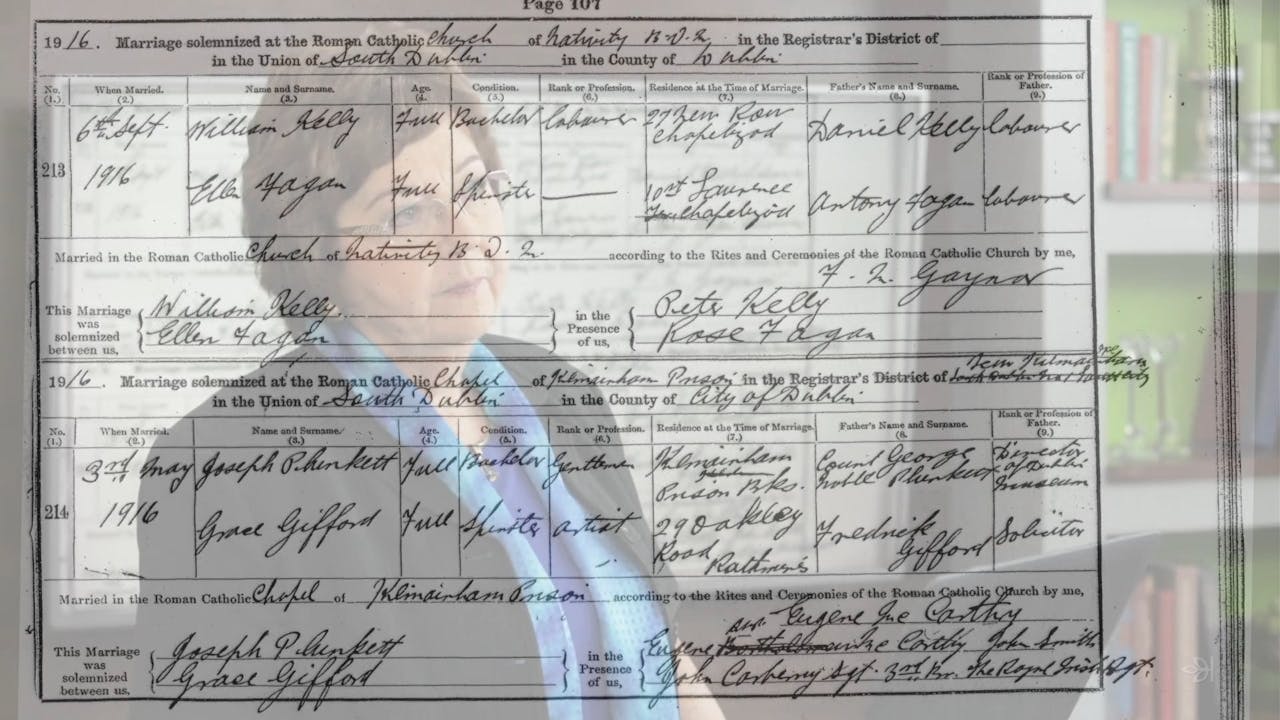 Page 107
1916. Marriage solemnized at the Roman Catholic Church of Nativity B.V.M. in the Registrar's District of
in the Union of South Dublin in the County of Dublin
No. When Married. Name and Surname. Age. Condition. Rank or Profession. Residence at the Time of Marriage. Father's Name and Surname. Rank or Profession of Father.
(1.) (2.) (3.) (4. (5.) (6.) (7.) (8.) (9.)
6th Sept. William Kelly Full Bachelor labourer 27 New Row Chapelizod Daniel Kelly labourer
213
1916 Ellen Fagan Full Spinster — 10 St Lawrence Chapelizod Antony Fagan labourer
Married in the Roman Catholic Church of Nativity B.V.M. according to the Rites and Ceremonies of the Roman Catholic Church by me,
Gaynor
This Marriage was solemnized between us, William Kelly in the Presence of us, Peter Kelly
Ellen Fagan Rose Fagan
1916. Marriage solemnized at the Roman Catholic Chapel of Kilmainham Prison in the Registrar's District of New Kilmainham
in the Union of South Dublin in the County of City of Dublin
No. When Married. Name and Surname. Age. Condition. Rank or Profession. Residence at the Time of Marriage. Father's Name and Surname. Rank or Profession of Father.
(1.) (2.) (3.) (4.) (5.) (6.) (7.) (8. (9.)
3rd May Joseph Plunkett Full Bachelor Gentleman Kilmainham Prison Bks. Count George Noble Plunkett Director of Dublin Museum
214
1916 Grace Gifford Full Spinster artist 29 Oakley Road Rathmines Fredrick Gifford Solicitor
Married in the Roman Catholic Chapel of Kilmainham Prison according to the Rites and Ceremonies of the Roman Catholic Church by me,
Eugene Mc Carthy
This Marriage was solemnized between us, Joseph Plunkett in the Presence of us, Eugene Mc Carthy John Smith
Grace Gifford John Carberry Sgt. 3rd Bn. The Royal Irish Rgt.